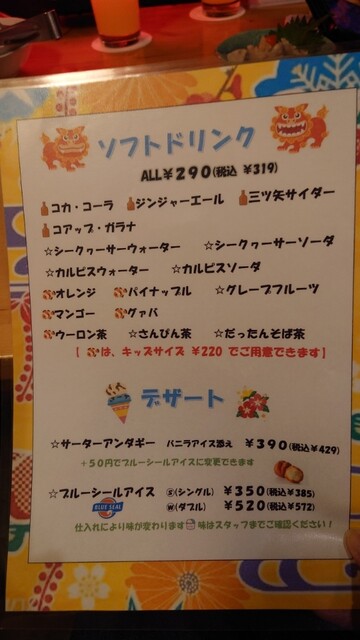 ソフトドリンク
ALL￥290(税込 ￥319)
コカ・コーラ ジンジャーエール 三ツ矢サイダー
コアップ・ガラナ
☆シークヮーサーウォーター ☆シークヮーサーソーダ
☆カルピスウォーター ☆カルピスソーダ
オレンジ パイナップル ☆グレープフルーツ
マンゴー グァバ
ウーロン茶 ☆さんぴん茶 ☆だったんそば茶
【 は、キッズサイズ ￥220 でご用意できます】
デザート
☆サーターアンダギー バニラアイス添え ￥390(税込￥429)
＋50円でブルーシールアイスに変更できます
☆ブルーシールアイス Ⓢ(シングル) ￥350(税込￥385)
BLUE SEAL Ⓦ(ダブル) ￥520(税込￥572)
仕入れにより味が変わります 味はスタッフまでご確認ください！